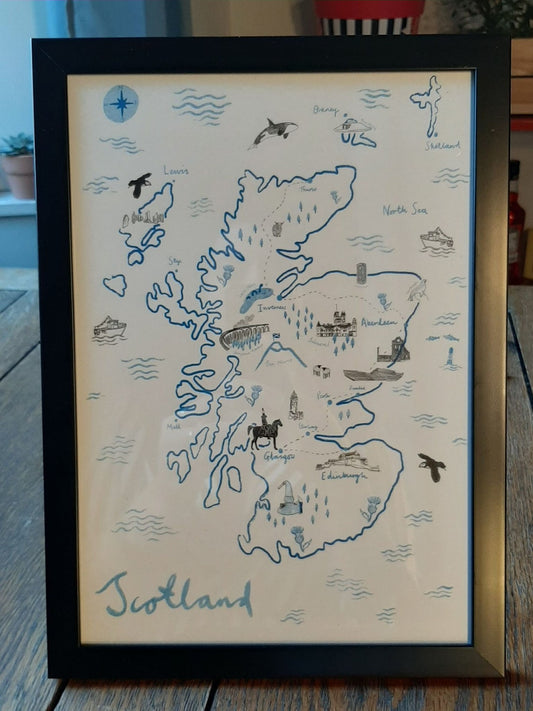 Orkney
Shetland
Lewis
Thurso
North Sea
Skye
Inverness
Aberdeen
Ben Nevis
Dundee
Perth
Mull
Stirling
Glasgow
Edinburgh
Scotland